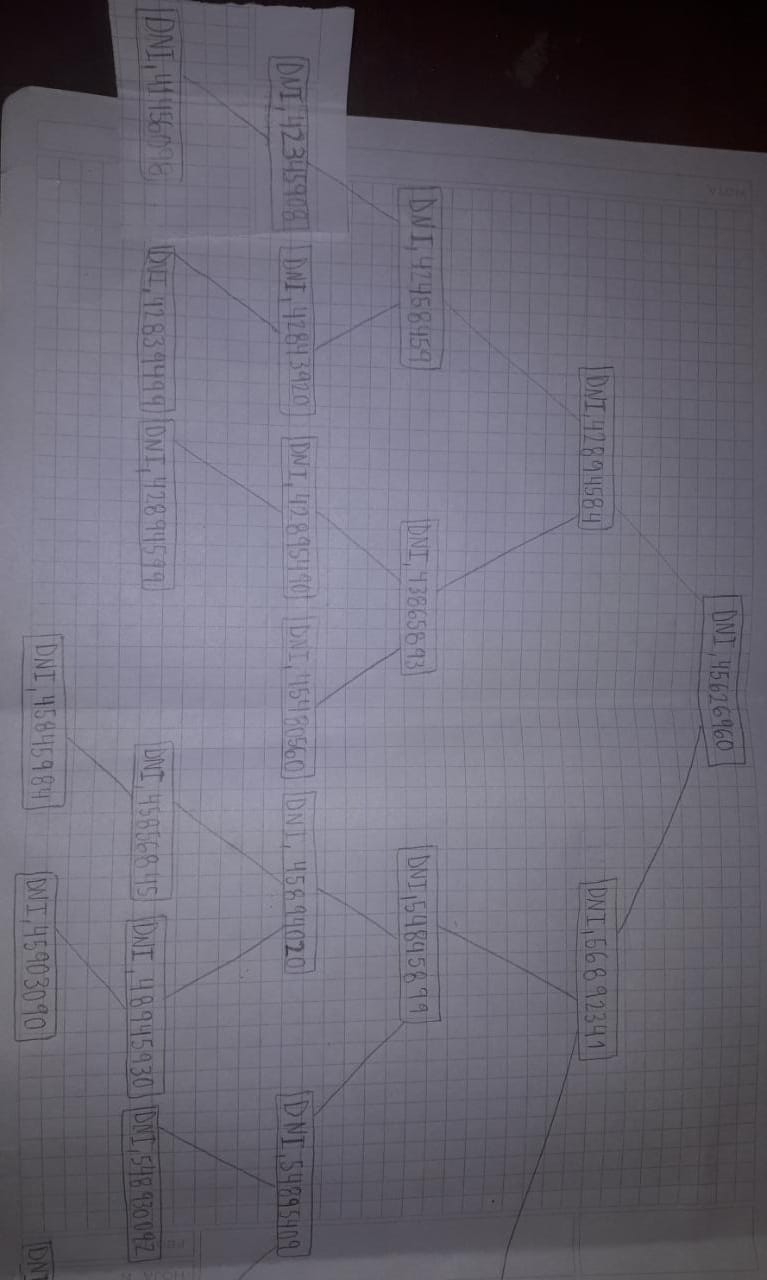 DNI,45626960
DNI,42894584
DNI,56892341
DNI,42458459
DNI,43865893
DNI,54845899
DNI,42345908
DNI,42843920
DNI,42895490
DNI,45480560
DNI, 45894020
DNI,54895409
DNI,41456098
DNI,42839499
DNI,42894599
DNI,45856845
DNI,48945930
DNI,548930092
DNI,45845984
DNI,45903090
DNI